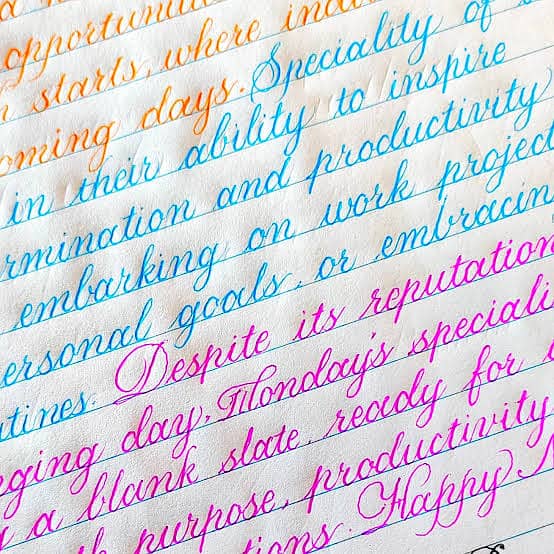 opportuni
starts, where ind
oming days. Speciality of
in their ability to inspire
rmination and productivity
embarking on work projec
ersonal goals, or embracin
utines. Despite its reputation
ging day, Monday's speciali
a blank slate, ready for
purpose, productivity
ions. Happy M